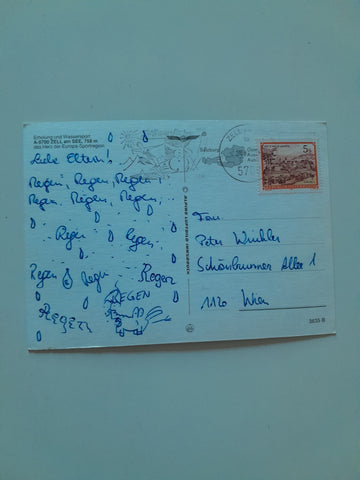 Erholung und Wassersport
A-5700 ZELL am SEE, 758 m
das Herz der Europa-Sportregion
Liebe Eltern!
Regen, Regen, Regen,
Regen, Regen, Regen,
Regen Regen,
Regen Regen Regen
REGEN
REGEN
ALPINE LUFTBILD INNSBRUCK
ZELL
5700
5 S
Fam.
Peter Winkler
Schönbrunner Allee 1
1120 Wien
2635 B